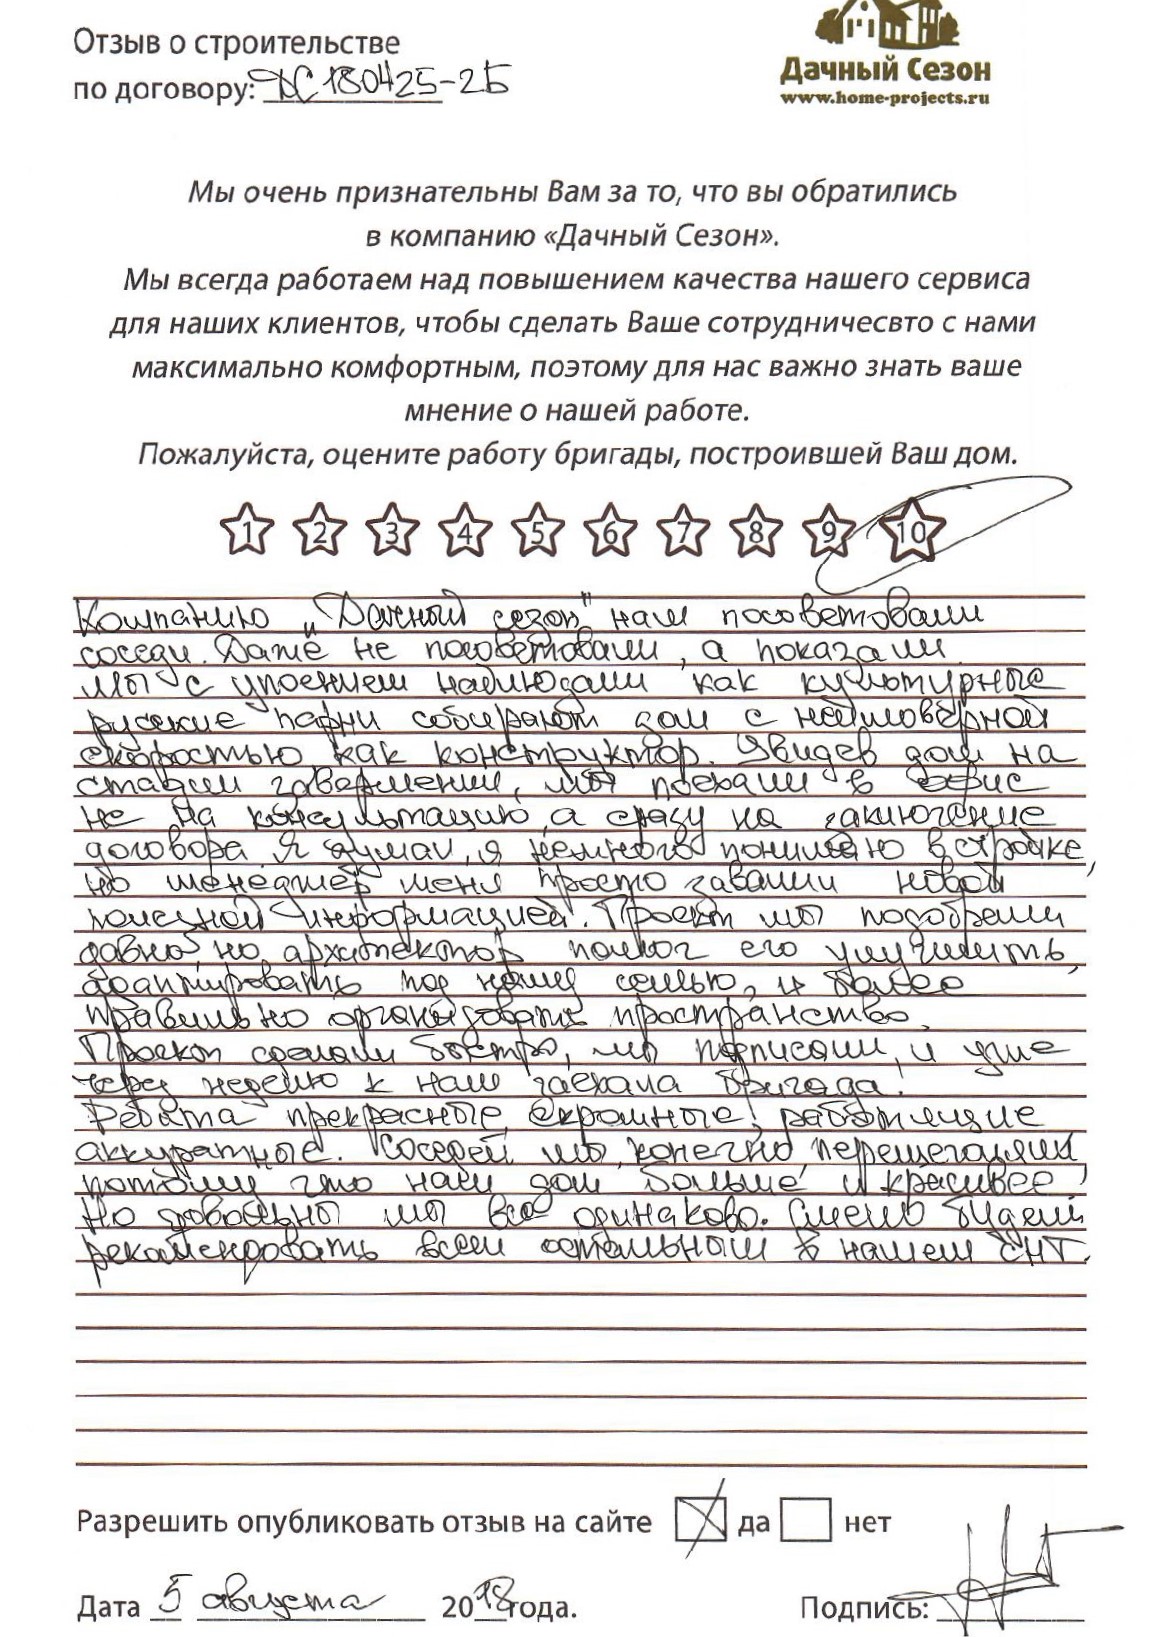 Отзыв о строительстве
по договору: ДС180425-2Б
Дачный Сезон
www.home-projects.ru
Мы очень признательны Вам за то, что вы обратились
в компанию «Дачный Сезон».
Мы всегда работаем над повышением качества нашего сервиса
для наших клиентов, чтобы сделать Ваше сотрудничесвто с нами
максимально комфортным, поэтому для нас важно знать ваше
мнение о нашей работе.
Пожалуйста, оцените работу бригады, построившей Ваш дом.
1 2 3 4 5 6 7 8 9 10
Компанию „Дачный сезон" нам посоветовали
соседи. Даже не посоветовали, а показали.
Мы с упоением наблюдали как культурные
русские парни собирают дом с неимоверной
скоростью как конструктор. Увидев дом на
стадии завершении, мы поехали в офис
не на консультацию, а сразу на заключение
договора. Я думал, я немного понимаю в стройке,
но менеджер меня просто завалил новой
полезной информацией. Проект мы подобрали
давно, но архитектор помог его улучшить,
адаптировать под нашу семью, и более
правильно организовать пространство.
Проект сделали быстро, мы подписали, и уже
через неделю к нам заехала бригада.
Ребята прекрасные, скромные, работящие
аккуратные. Соседей мы, конечно перещеголяли,
потому что наш дом больше и красивее!
Но довольны мы все одинаково. Смело будем
рекомендовать всем остальным в нашем СНТ.
Разрешить опубликовать отзыв на сайте да нет
Дата 5 августа 2018 года. Подпись: